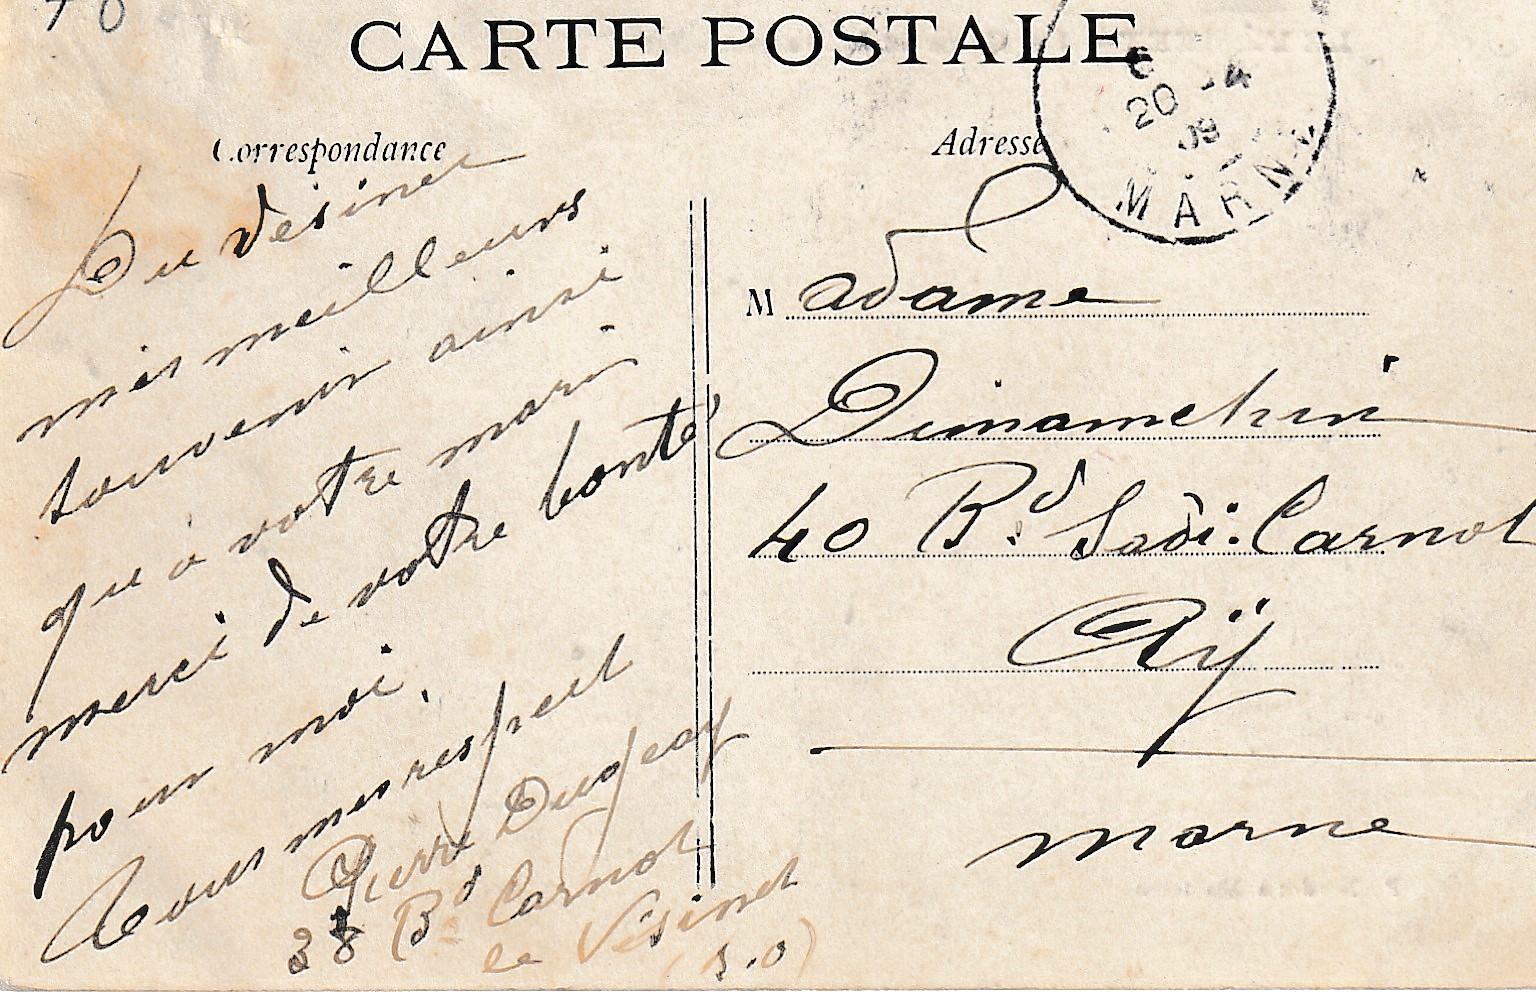 CARTE POSTALE
20 -4
09
MARNE
Correspondance
Du Vésinet
mes meilleurs
souvenir ainsi
qu'à votre mari
merci de votre bonté
pour moi.
Tous mes respect
Pierre
38 Bd Carnot
le Vésinet
(S.O)
Adresse
Madame
40 Bd Sadi-Carnot
Aÿ
Marne